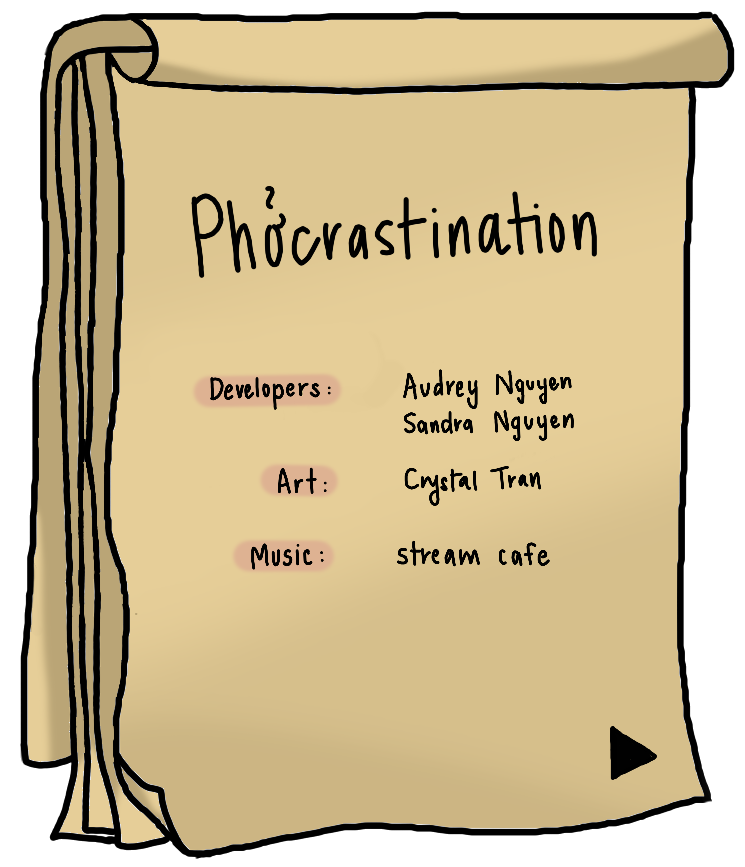 Phởcrastination
Developers: Audrey Nguyen
Sandra Nguyen
Art: Crystal Tran
Music: stream cafe